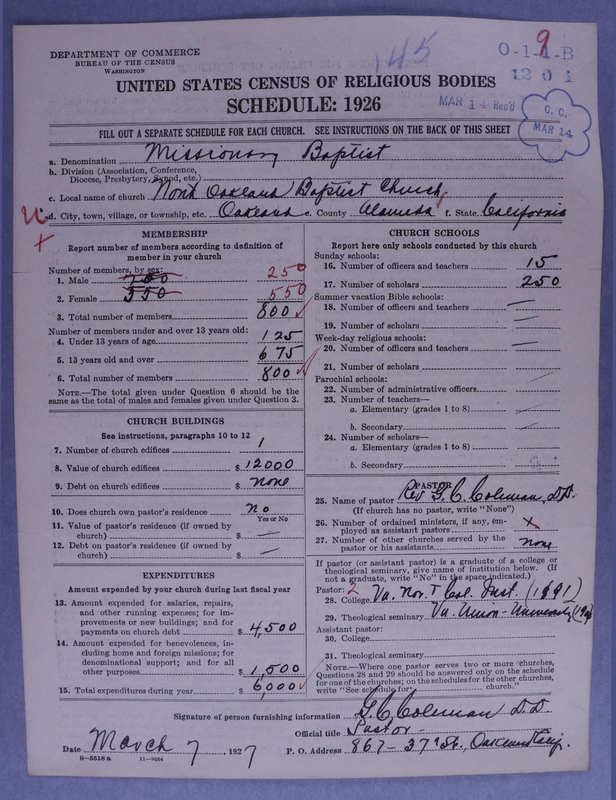 145
9
DEPARTMENT OF COMMERCE
BUREAU OF THE CENSUS
WASHINGTON
O-1-1-B
1201
UNITED STATES CENSUS OF RELIGIOUS BODIES
SCHEDULE: 1926
MAR 14 Rec'd
C. C.
MAR 14
FILL OUT A SEPARATE SCHEDULE FOR EACH CHURCH. SEE INSTRUCTIONS ON THE BACK OF THIS SHEET
a. Denomination Missionary Baptist
b. Division (Association, Conference, Diocese, Presbytery, Synod, etc.)
c. Local name of church North Oakland Baptist Church
d. City, town, village, or township, etc. Oakland e. County Alameda f. State California
MEMBERSHIP
Report number of members according to definition of member in your church
Number of members, by sex:
1. Male 250
2. Female 550 550
3. Total number of members 800
Number of members under and over 13 years old:
4. Under 13 years of age 125
5. 13 years old and over 675
6. Total number of members 800
NOTE.—The total given under Question 6 should be the same as the total of males and females given under Question 3.
CHURCH BUILDINGS
See instructions, paragraphs 10 to 12
7. Number of church edifices 1
8. Value of church edifices $ 12000
9. Debt on church edifices $ none
10. Does church own pastor's residence? No
Yes or No
11. Value of pastor's residence (if owned by church) $ —
12. Debt on pastor's residence (if owned by church) $ —
EXPENDITURES
Amount expended by your church during last fiscal year
13. Amount expended for salaries, repairs, and other running expenses; for improvements or new buildings; and for payments on church debt $ 4,500
14. Amount expended for benevolences, including home and foreign missions; for denominational support; and for all other purposes $ 1,500
15. Total expenditures during year $ 6,000
CHURCH SCHOOLS
Report here only schools conducted by this church
Sunday schools:
16. Number of officers and teachers 15
17. Number of scholars 250
Summer vacation Bible schools:
18. Number of officers and teachers —
19. Number of scholars —
Week-day religious schools:
20. Number of officers and teachers —
21. Number of scholars —
Parochial schools:
22. Number of administrative officers —
23. Number of teachers—
a. Elementary (grades 1 to 8) —
b. Secondary —
24. Number of scholars—
a. Elementary (grades 1 to 8) —
b. Secondary
PASTOR
25. Name of pastor Rev G. C. Coleman, D.D.
(If church has no pastor, write "None")
26. Number of ordained ministers, if any, employed as assistant pastors x
27. Number of other churches served by the pastor or his assistants none
If pastor (or assistant pastor) is a graduate of a college or theological seminary, give name of institution below. (If not a graduate, write "No" in the space indicated.)
Pastor: 2
28. College Va. Nor. T Col. Inst. (1891)
29. Theological seminary Va. Union University
Assistant pastor:
30. College
31. Theological seminary
NOTE.—Where one pastor serves two or more churches, Questions 28 and 29 should be answered only on the schedule for one of the churches; on the schedules for the other churches, write "See schedule for church."
Signature of person furnishing information G. C. Coleman D.D.
Official title Pastor
Date March 7, 1927 P. O. Address 867-37th St., Oakland Calif.
8-5518 a 11-9054